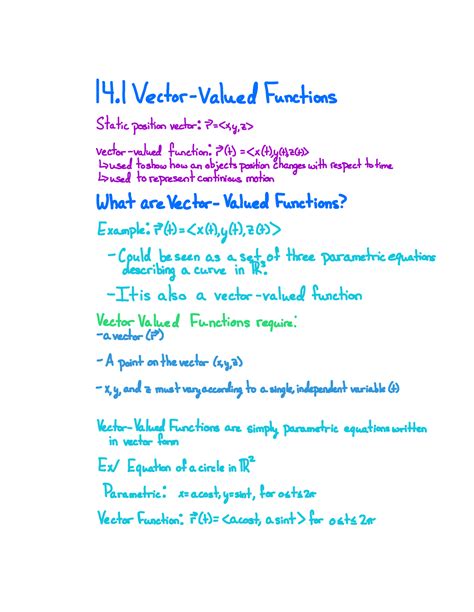 14.1 Vector-Valued Functions
Static position vector: r⃗=<x,y,z>
vector-valued function: r⃗(t) =<x(t),y(t),z(t)>
↳used to show how an objects position changes with respect to time
↳used to represent continious motion
What are Vector-Valued Functions?
Example: r⃗(t)=<x(t),y(t),z(t)>
-Could be seen as a set of three parametric equations
describing a curve in ℝ³.
-It is also a vector-valued function
Vector Valued Functions require:
-a vector (r⃗)
-A point on the vector (x,y,z)
-x,y, and z must vary according to a single, independent variable (t)
Vector-Valued Functions are simply parametric equations written
in vector form
Ex/ Equation of a circle in ℝ²
Parametric: x=acost, y=sint, for 0≤t≤2π
Vector Function: r⃗(t)=<acost, asint> for 0≤t≤2π